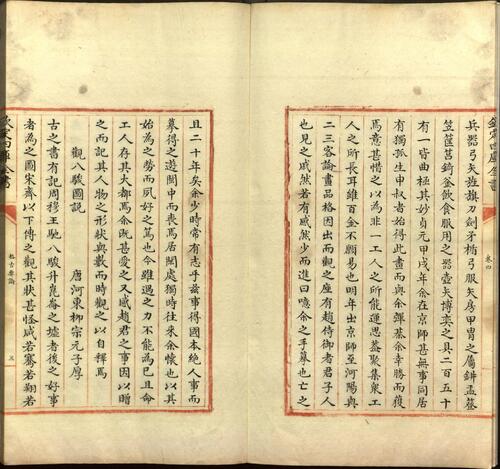 欽定四庫全書
卷四
兵器弓矢旌旗刀劍矛楯弓服矢房甲冑之屬缾盂簦
笠筐筥錡釜飲食服用之器壺矢博奕之具二百五十
有一皆曲極其妙貞元甲戌年余在京師甚無事同居
有獨孤生申叔者始得此畫而與余彈棊余幸勝而獲
焉意甚惜之以為非一工人之所能運思蓋聚集衆工
人之所長耳雖百金不願易也明年出京師至河陽與
二三客論畫品格因出而觀之座有趙侍御者君子人
也見之戚然若有感然少而進曰噫余之手摹也亡之
且二十年矣余少時常有志乎兹事得國本絶人事而
摹得之遊閩中而喪焉居閒處獨時往來余懷也以其
始為之勞而夙好之篤也今雖遇之力不能為已且命
工人存其大都焉余既甚愛之又感趙君之事因以贈
之而記其人物之形狀與數而時觀之以自釋焉
觀八駿圖說
唐河東柳宗元子厚
古之書有記周穆王馳八駿升崑崙之墟者後之好事
者為之圖宋齊以下傳之觀其狀甚怪咸若騫若翔若
欽定四庫全書
格古要論
五